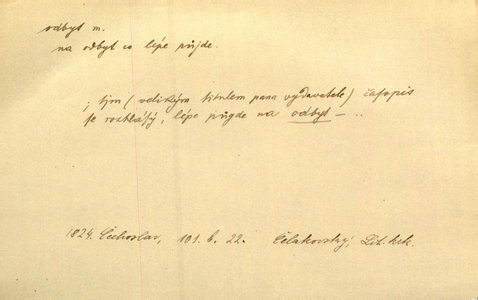 odbyt m.
na odbyt co lépe půjde.
; tjm (velikým titulem pana vydavatele) časopis
se rozhlásý, lépe půgde na odbyt — ..
1824. Čechoslav, 101. b. 22. Čelakovský, Lit. krk.